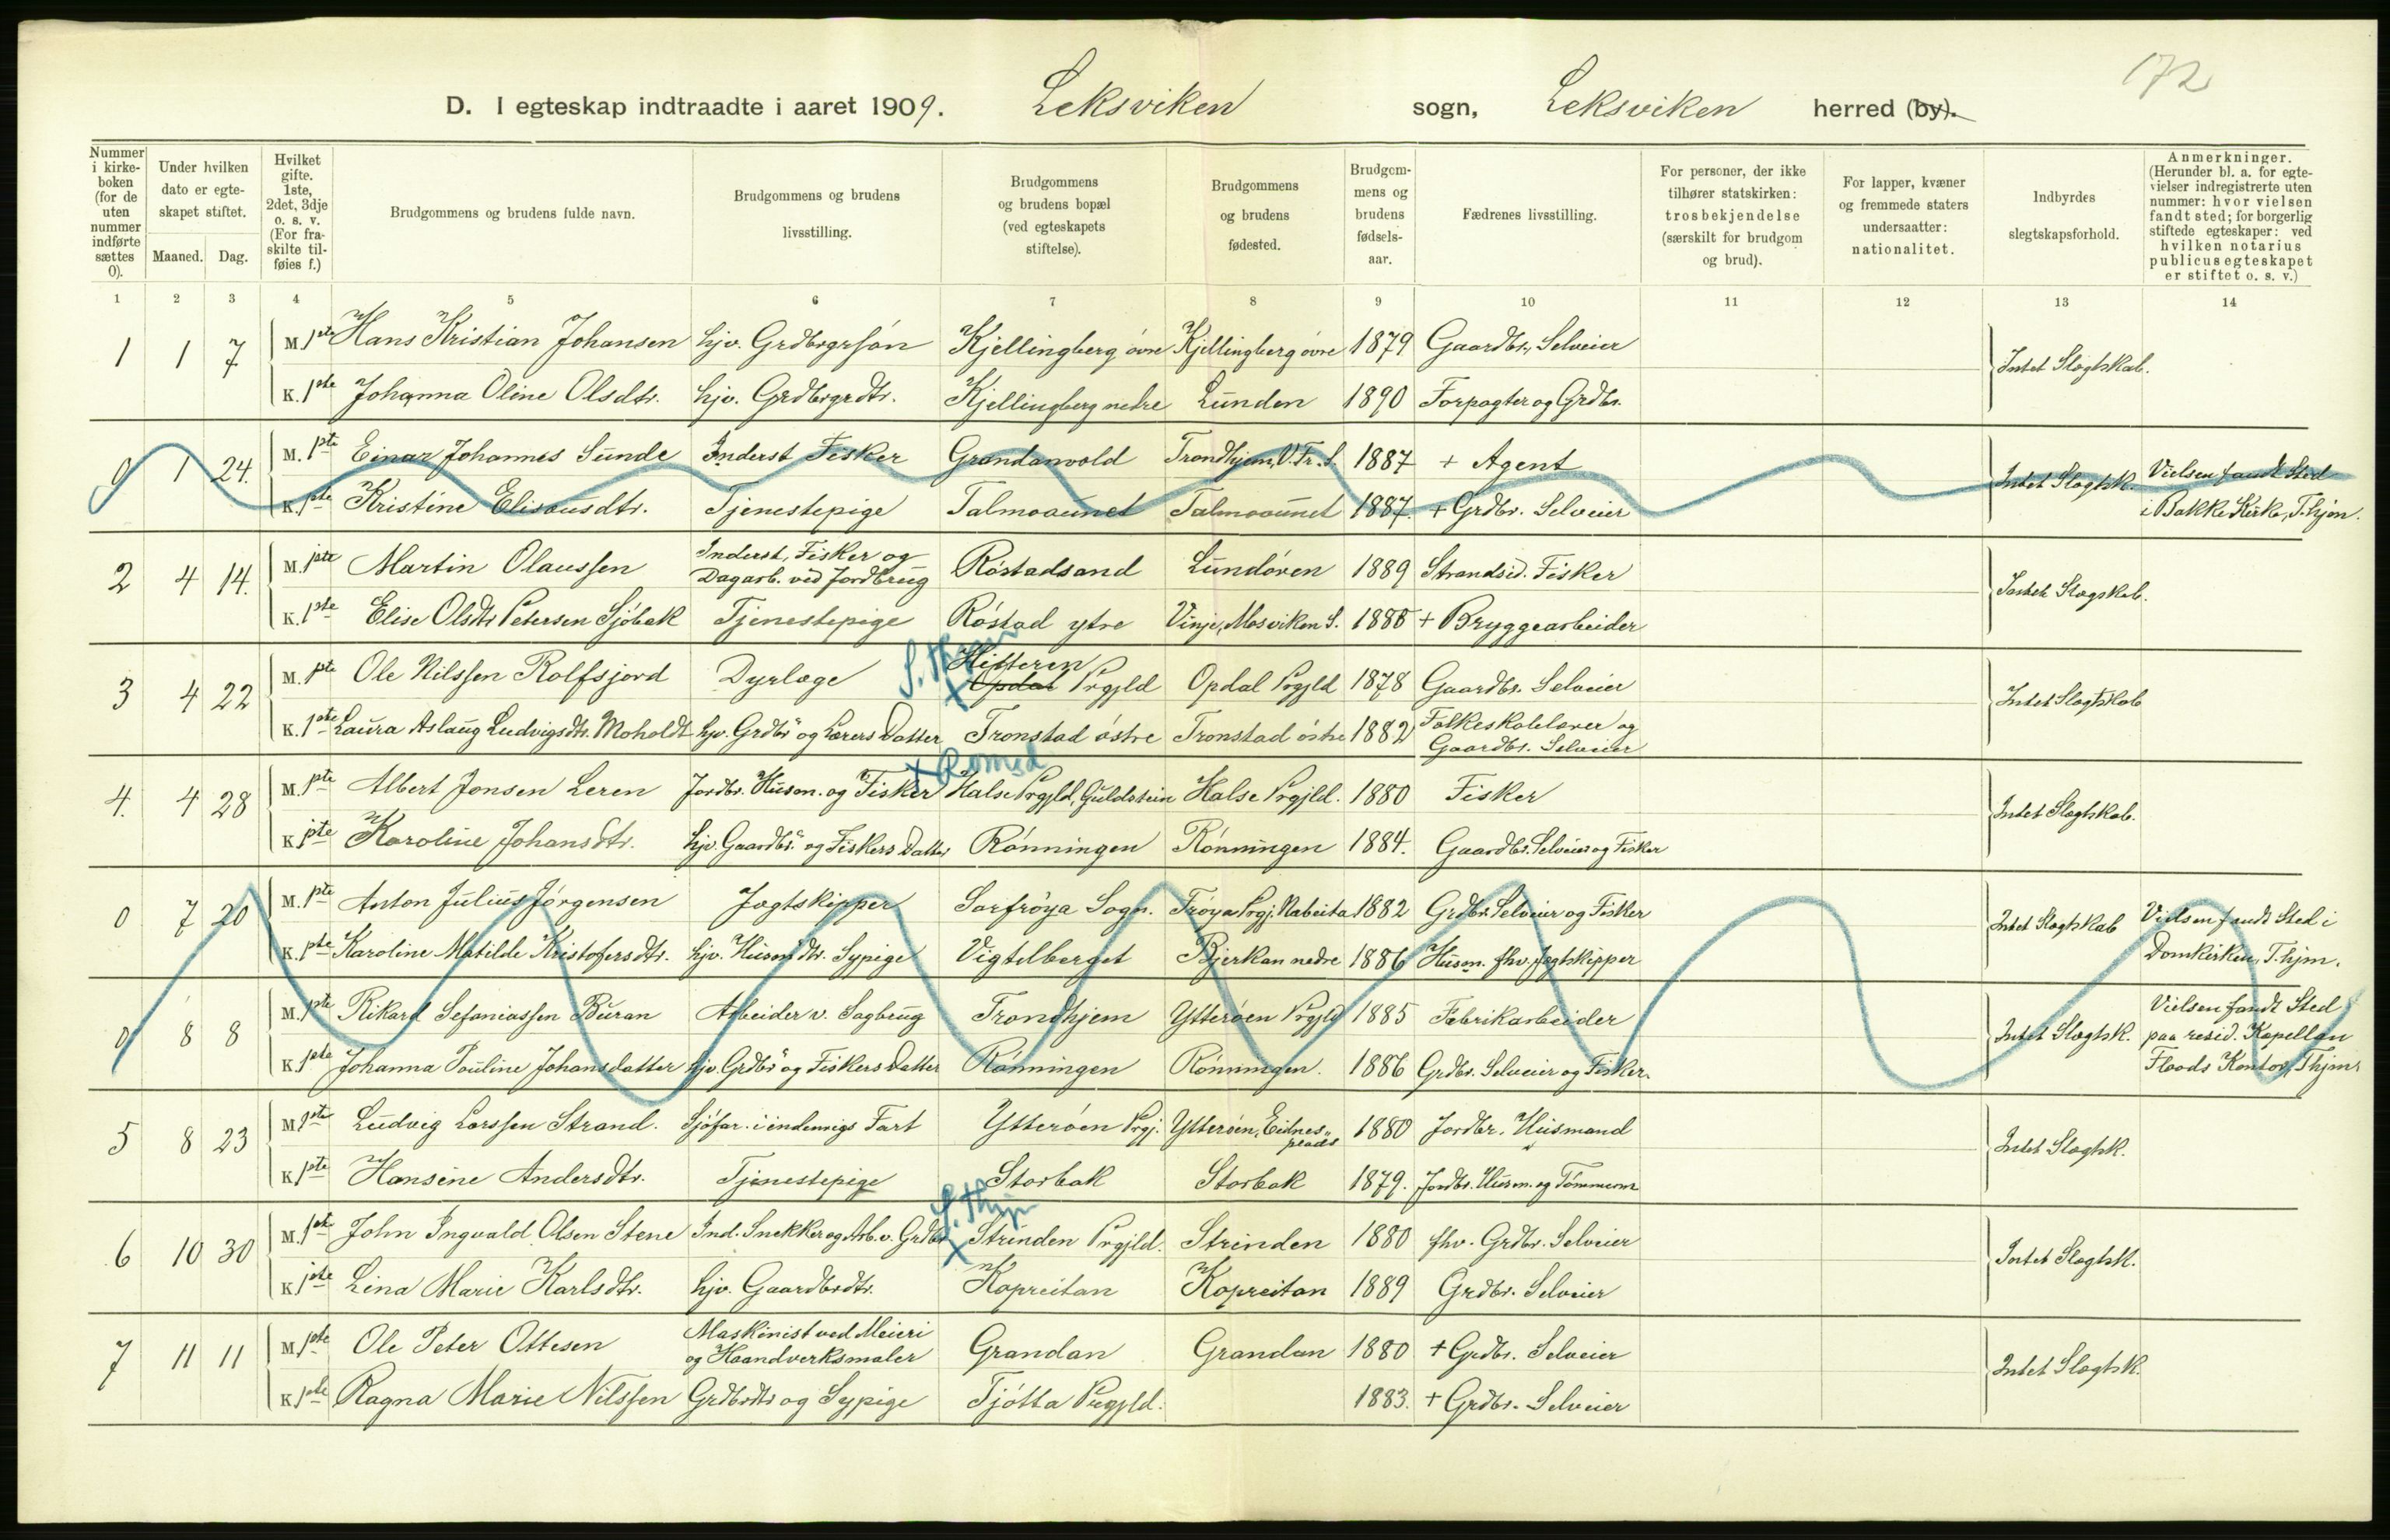 172
D. I egteskap indtraadte i aaret 1909. Leksviken sogn, Leksviken herred (by).
Nummer i kirke-boken (for de uten nummer indførte sættes 0).
Under hvilken dato er egte-skapet stiftet.
Maaned. Dag.
Hvilket gifte. 1ste, 2det, 3dje o. s. v. (For fra-skilte til-føies f.)
Brudgommens og brudens fulde navn.
Brudgommens og brudens livsstilling.
Brudgommens og brudens bopæl (ved egteskapets stiftelse).
Brudgommens og brudens fødested.
Brudgom-mens og brudens fødsels-aar.
Fædrenes livsstilling.
For personer, der ikke tilhører statskirken: trosbekjendelse (særskilt for brudgom og brud).
For lapper, kvæner og fremmede staters undersaatter: nationalitet.
Indbyrdes slegtskapsforhold.
Anmerkninger. (Herunder bl. a. for egte-vielser indregistrerte uten nummer: hvor vielsen fandt sted; for borgerlig stiftede egteskaper: ved hvilken notarius publicus egteskapet er stiftet o. s. v.)
1 2 3 4 5 6 7 8 9 10 11 12 13 14
1 1 7 M. 1ste Hans Kristian Johansen hjv. Grdbrgrsón Kjellingberg óvre Kjellingberg óvre 1879 Gaardbr., Selveier Intet Slægtskab.
K. 1ste Johanna Oline Olsdtr. hjv. Grdbrgrdtr. Kjellingberg nedre Lunden 1890 Forpagter og Grdbr.
0 1 24. M. 1ste Einar Johannes Sunde Inderst Fisker Grandanvold Trondhjem, V. Fr. S. 1887 + Agent Intet Slægtsk. Vielsen fandt Sted
K. 1ste Kristine Eliseusdtr. Tjenestepige Talmoaunet Talmoaunet 1887. + Grdbr. Selveier i Bakke Kirke, T.hjm.
2 4 14. M. 1ste Martin Olaussen Inderst, Fisker og Dagarb. ved Jordbrug Róstadsand Lundóren 1889 Strandsid. Fisker Intet Slægskab.
K. 1ste Elise Olsdtr Petersen Sjóbak Tjenestepige Róstad ytre Vinje, Mosviken S. 1888 + Bryggearbeider
S. Thjem
3 4 22 M. 1ste Ole Nilssen Rolfsjord Dyrlæge Hitteren Opdal Prgjld Opdal Prgjld 1878 Gaardbr. Selveier Intet Slægtskab
K. 1ste Laura Aslaug Ludvigsdtr. Moholdt hjv. Grdbr og Lærers Datter Tronstad óstre Tronstad óstre 1882 Folkeskolelærer og Gaardbr. Selveier
x Romsd
4. 4 28 M. 1ste Albert Jonsen Leren Jordbr. Husm. og Fisker Halse Prgjld, Guldstein Halse Prgjld. 1880 Fisker Intet Slægtskab.
K. 1ste Karoline Johansdtr. hjv. Gaardbr. og Fiskers Datter Rónningen Rónningen 1884. Gaardbr. Selveier og Fisker
0 7 20 M. 1ste Anton Julius Jórgensen Jagtskipper Sørfróya Sogn. Fróya Prgj. Nabeita 1882 Grdbr. Selveier og Fisker Intet Slægtskab Vielsen fandt Sted i
K. 1ste Karoline Matilde Kristofersdtr. hjv. Husmdtr. Sypige Vigtelberget Bjerkan nedre 1886 Husm. fhv. Jagtskipper Domkirken, T.hjm.
0 8 8 M. 1ste Rikard Sefaniassen Buran Arbeider v. Sagbrug Trondhjem Ytteróen Prgjld 1885 Fabrikarbeider Intet Slægtsk. Vielsen fandt Sted paa resid. Kapellan
K. 1ste Johanna Pauline Johansdatter hjv. Grdbr og Fiskers Datter Rónningen Rónningen. 1886 Grdbr. Selveier og Fisker. Floods Kontor, Thjm.
5 8 23 M. 1ste Ludvig Larssen Strand. Sjófar. i indenrigs Fart Ytteróen Prgj. Ytteróen, Eidnes-plads 1880 Jordbr. Husmand Intet Slægtsk.
K. 1ste Hansine Andersdtr. Tjenestepige Storbak Storbak 1879. Jordbr. Husm. og Tómmerm
S. Thjm
6 10 30 M. 1ste John Ingvald Olsen Stene Ind. Snekker og Arb. v. Grdbr. x Strinden Prgjld. Strinden 1880 fhv. Grdbr. Selveier Intet Slægtsk.
K. 1ste Lina Marie Karlsdtr. hjv. Gaardbrdtr. Kopreitan Kopreitan 1889 Grdbr. Selveier
7 11 11 M. 1ste Ole Peter Ottesen Maskinist ved Meieri og Haandverksmaler Grandan Grandan 1880 + Grdbr. Selveier Intet Slægtsk.
K. 1ste Ragna Marie Nilssen Grdbrdtr og Sypige Tjótta Prgjld. 1883. + Grdbr. Selveier